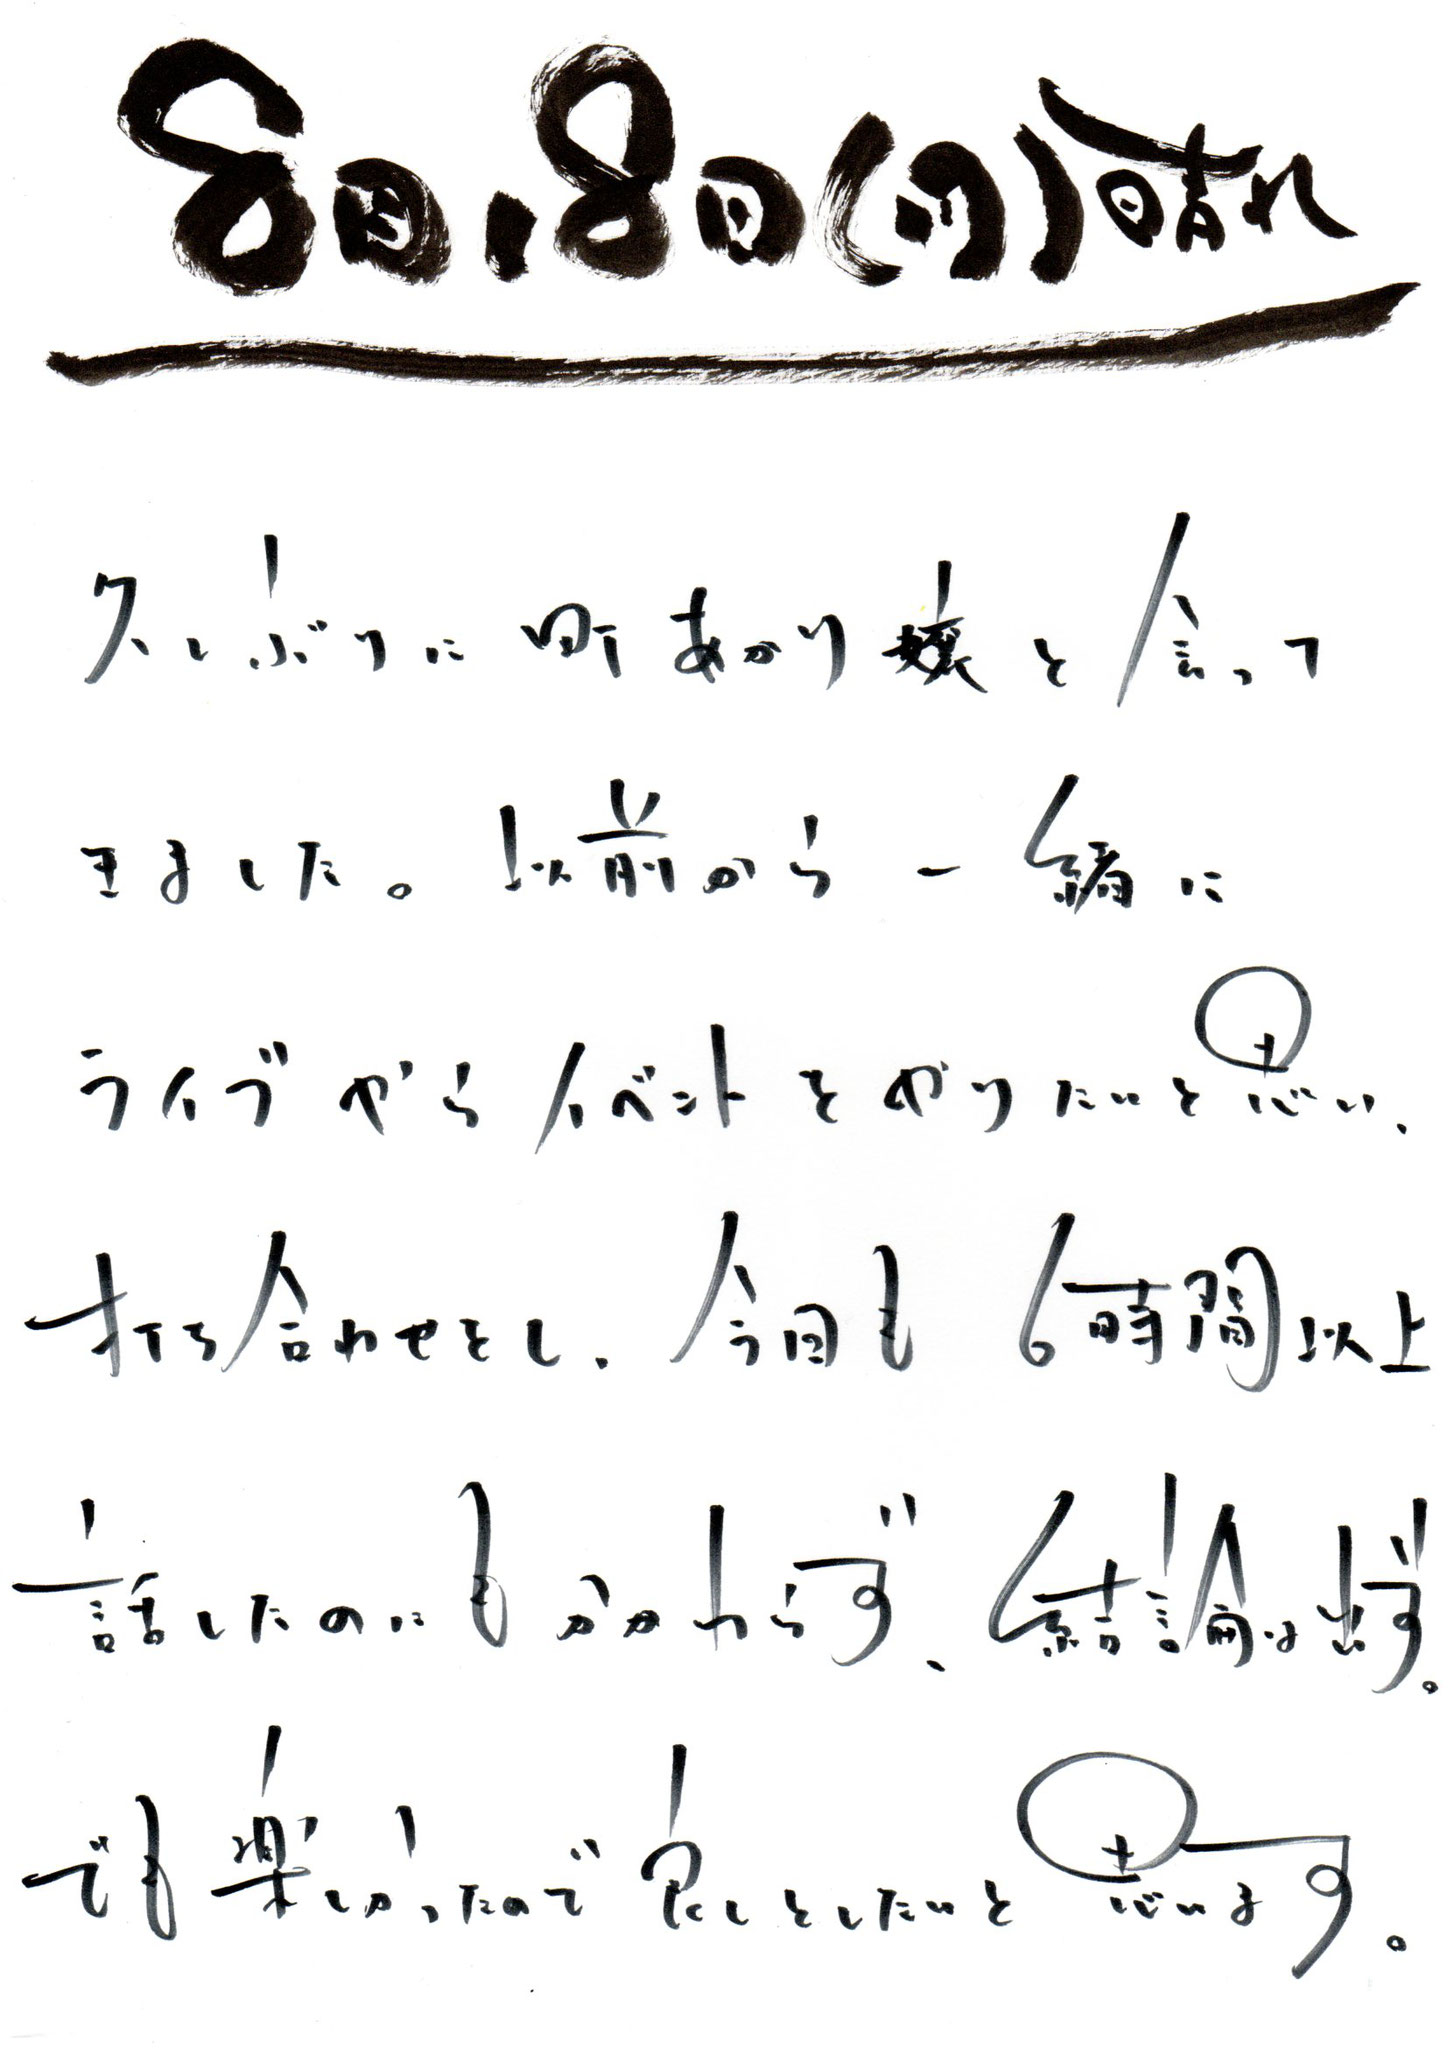 8月,8日(月)晴れ
久しぶりに町あかり嬢と会って
きました。以前から一緒に
ライブやらイベントをやりたいと思い、
打ち合わせをし、今回も6時間以上
話したのにもかかわらず、結論は出ず。
でも楽しかったので良しとしたいと思います。